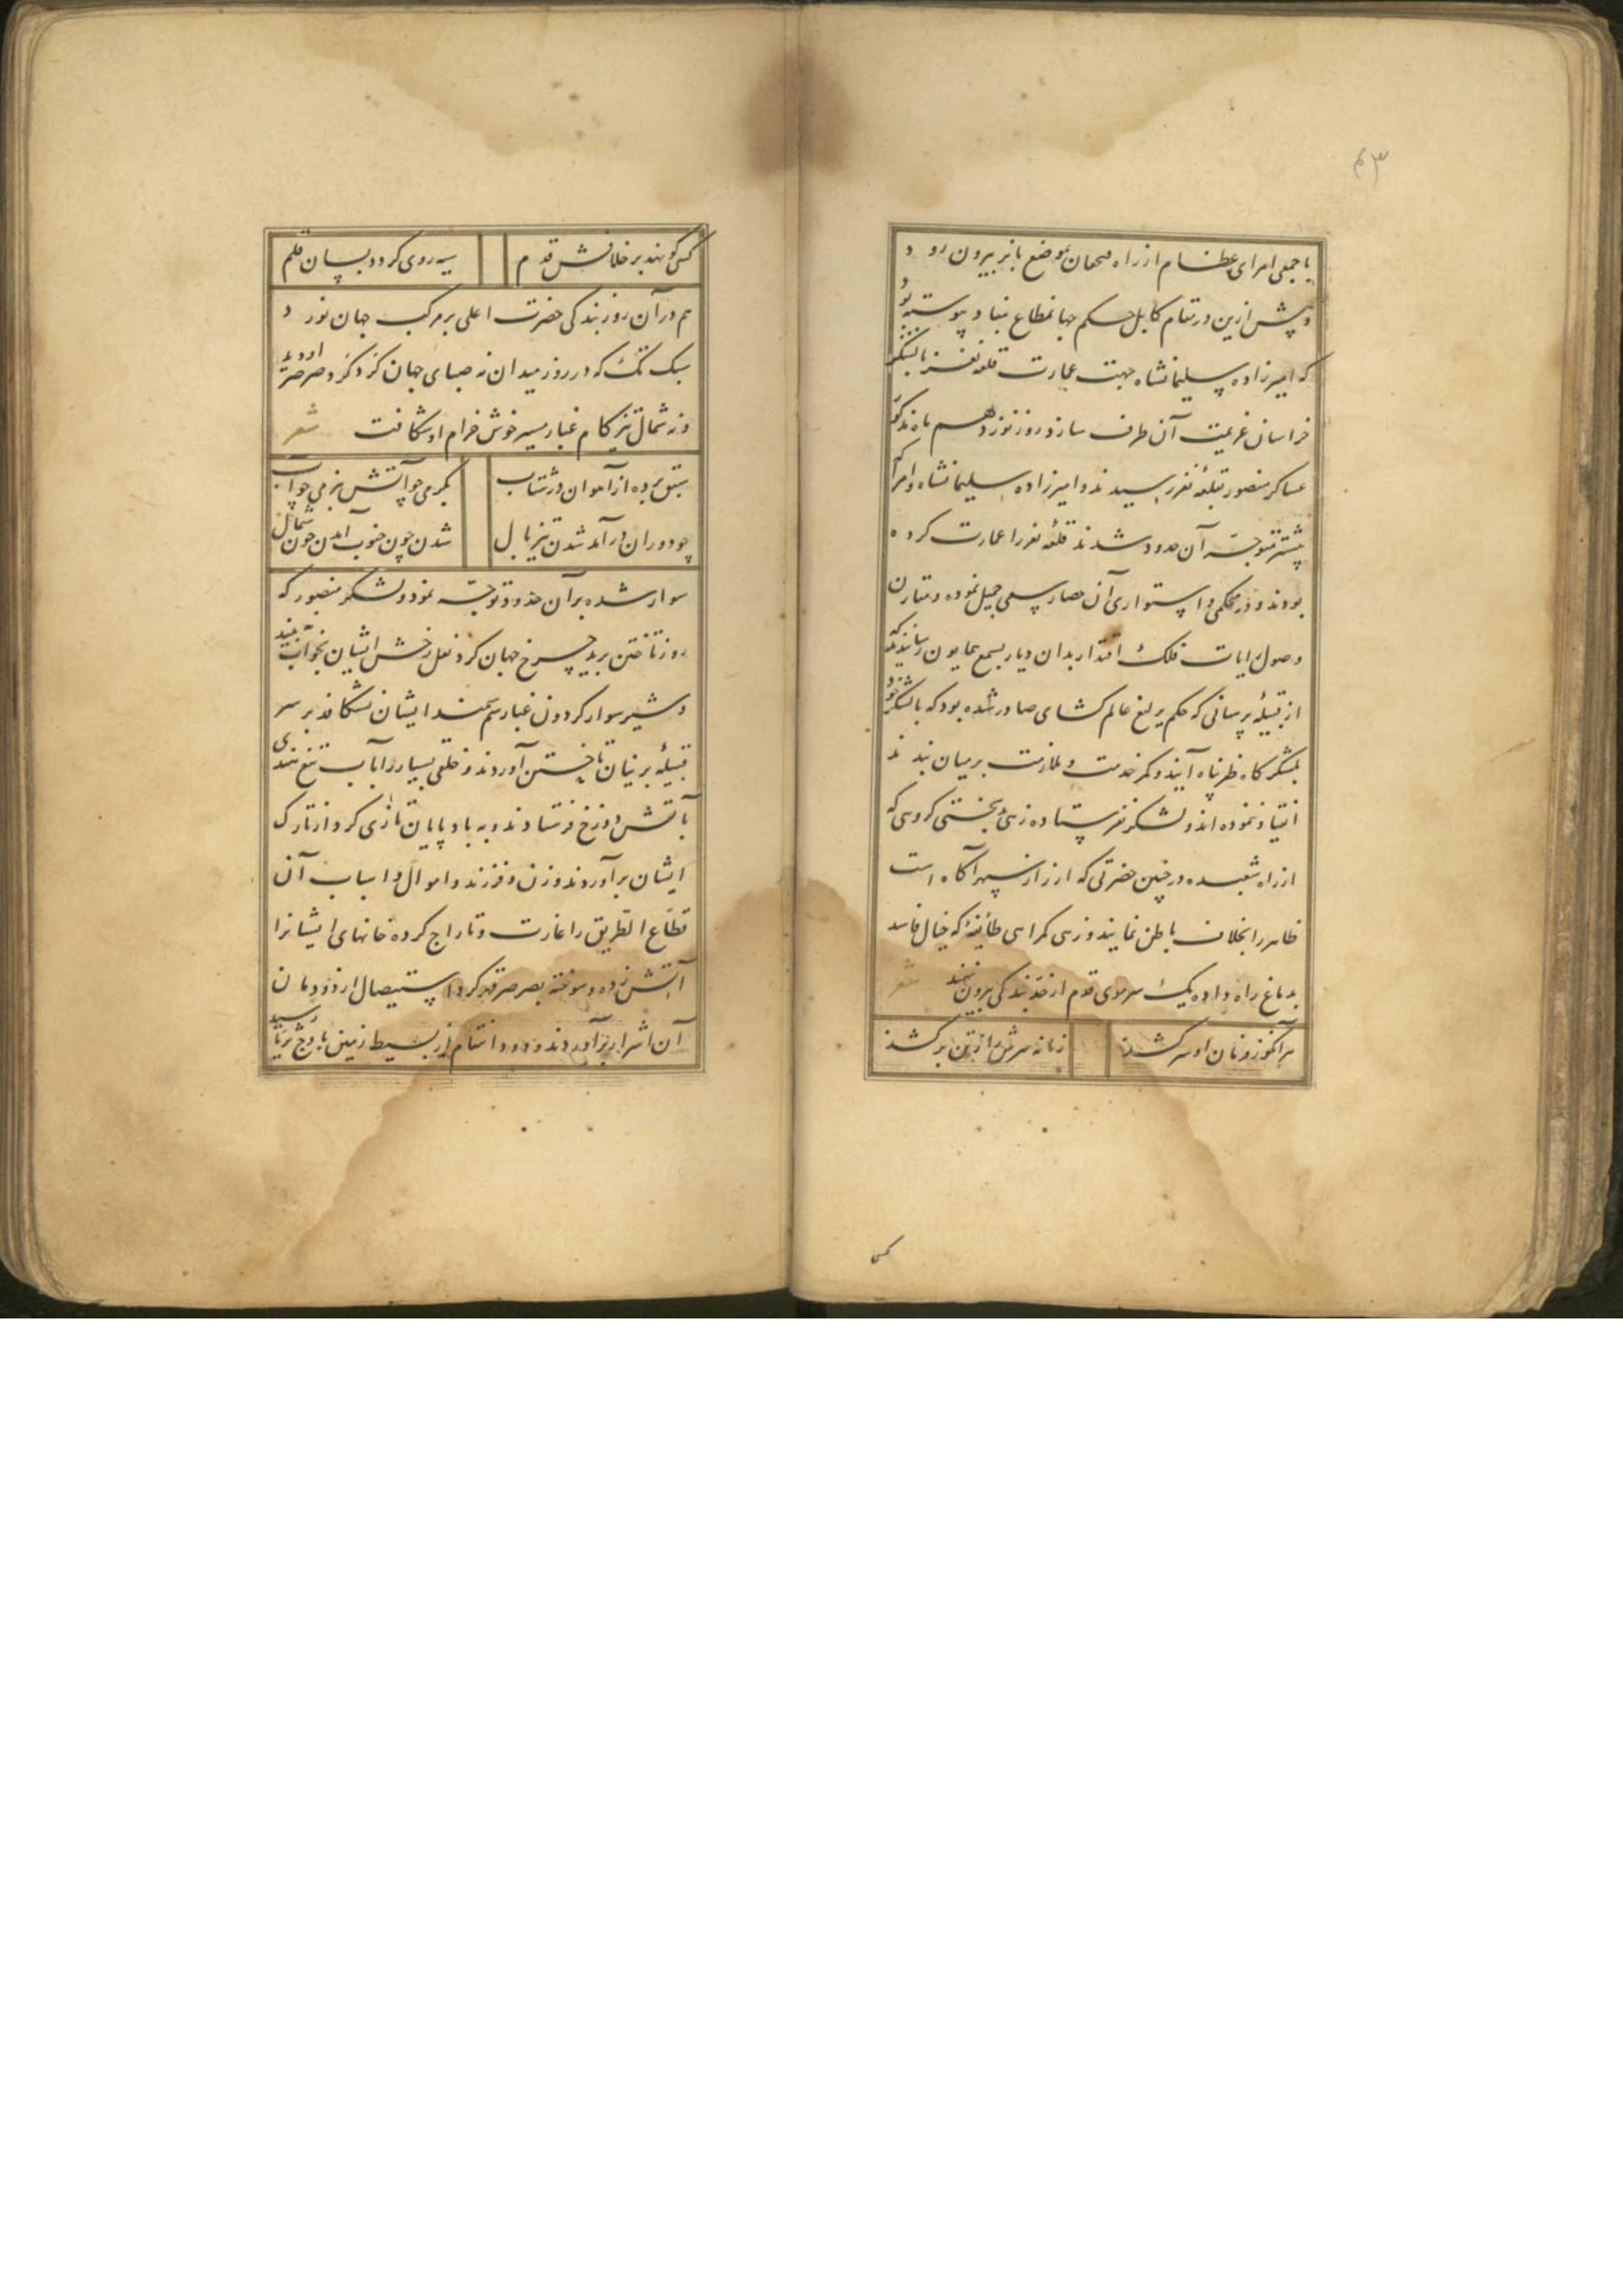 ۴۳
با جمعی امرای عظام از راه بموضع بانو بیرون رود
و پیش ازین در مقام کابل حکم جهانمطاع بنفاد پیوسته بود
که امیرزاده سلیمانشاه جهت عمارت قلعه نغز با لشکر
خراسان عزیمت آن طرف سازد روز نوزدهم ماه مذکور
عساکر منصور بقلعه نغز رسیدند و امیرزاده سلیمانشاه و امرا که
پیشتر متوجه آن حدود شدند قلعه نغر را عمارت کرده
بودند و در محکمی و استواری آن حصار سعی جمیل نموده و مقارن
وصول رایات فلک اقتدار بدان دیار بسمع همایون رسانیدند که
از قبیله پرنیانی که حکم یرلیغ عالم گشای صادر شده بود که با لشکر خود
بلشکرگاه ظفر پناه آیند و کمر خدمت و ملازمت بر میان بندند
انقیاد ننموده اند و لشکر نفرستاده زهی بدبختی گروهی که
از راه شعبده در چنین حضرتی که از راز سپهر آگاه است
ظاهر را بخلاف باطن نمایند و زهی گمراهی طائفه که خیال فاسد
بدماغ راه داده یک سر موی قدم از حد بندگی بیرون نهند شعر
هر آنکو ز فرمان او سر کشد زمانه سرش را ز تن بر کشد
کسی
کسی کو نهد بر خلافش قدم سیه روی گردد بسان قلم
هم در آن روز بندگی حضرت اعلی بر مرکب جهان نورد
سبک تک که در روز میدان نه صبای جهان گرد گرد او دید و نه صرصر
و نه شمال تیز گام غبار مسیر خوش خرام او شکافت شعر
سبق برده از آهوان در شتاب بگرمی چو آتش بنرمی چو آب
چو دوران در آمد شدن تیز بال شدن چون جنوب آمدن چون شمال
سوار شده بر آن حدود توجه نمود و لشکر منصور که
روز تاختن برید چرخ جهان گرد نعل رخش ایشان بخواب نبیند
و شیر سوار گردون غبار سم سمند ایشان نشکافد بر سر
قبیله پرنیان تاختن آوردند و خلقی بسیار را بآب تیغ هندی
بآتش دوزخ فرستادند و به باد پایان تازی گرد از تارک
ایشان برآوردند و زن و فرزند و اموال و اسباب آن
قطاع الطریق را غارت و تاراج کرده خانهای ایشانرا
آتش زده و سوخته بصرصر قهر گرد استیصال از دودمان
آن اشرار برآوردند و دود انتقام از بسیط زمین باوج ثریا رسید